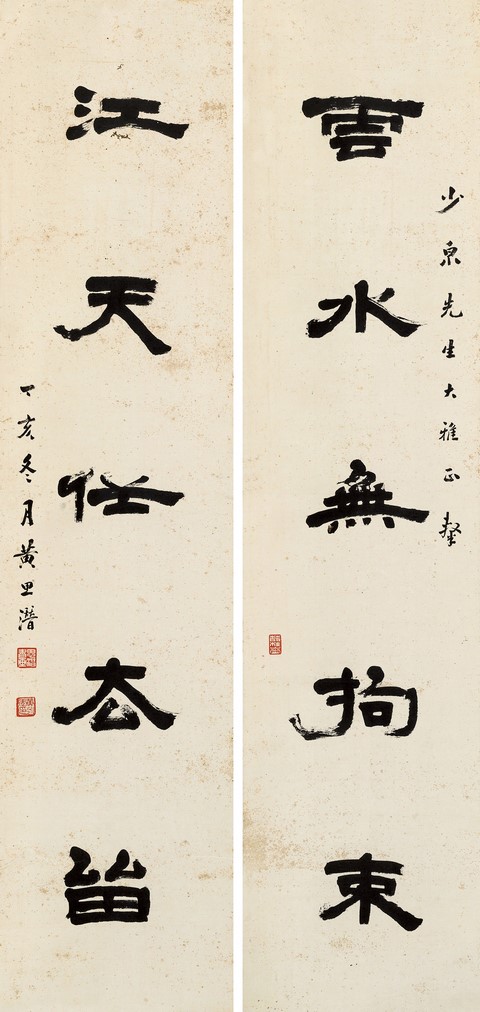 少泉先生大雅正
雲水無拘束
江天任去留
丁亥冬月黃思潛